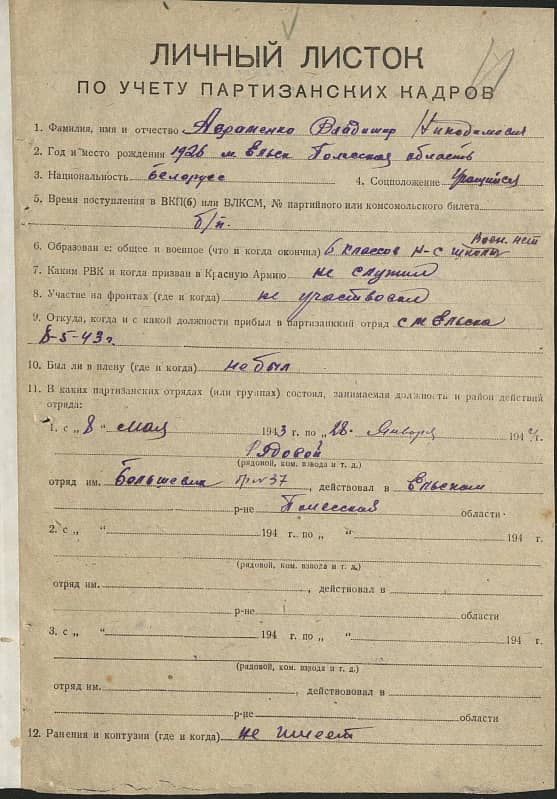 ЛИЧНЫЙ ЛИСТОК
ПО УЧЕТУ ПАРТИЗАНСКИХ КАДРОВ
1. Фамилия, имя и отчество Авраменко Владимир Никодимович
2. Год и место рождения 1926 м. Ельск Полесская область
3. Национальность белорусс 4. Соцположение Учащийся
5. Время поступления в ВКП(б) или ВЛКСМ, № партийного или комсомольского билета
б/п.
Воен. нет
6. Образован е: общее и военное (что и когда окончил) 6 классов н-с школы
7. Каким РВК и когда призван в Красную Армию не служил
8. Участие на фронтах (где и когда) не участвовал
9. Откуда, когда и с какой должности прибыл в партизанский отряд с м Ельска
8-5-43 г.
10. Был ли в плену (где и когда) не был
11. В каких партизанских отрядах (или группах) состоял, занимаемая должность и район действий
отряда:
1. с „ 8 “ мая 1943 г. по „ 28 “ Января 1944 г.
Рядовой
(рядовой, ком. взвода и т. д.)
отряд им. Большевик №37, действовал в Ельском
р-не Полесской области
2. с „ “ 194 г. по „ “ 194 г.
(рядовой, ком. взвода и т. д.)
отряд им. , действовал в
р-не области
3. с „ “ 194 г. по „ “ 194 г.
(рядовой, ком. взвода и т. д.)
отряд им. , действововал в
р-не области
12. Ранения и контузии (где и когда) не имеет